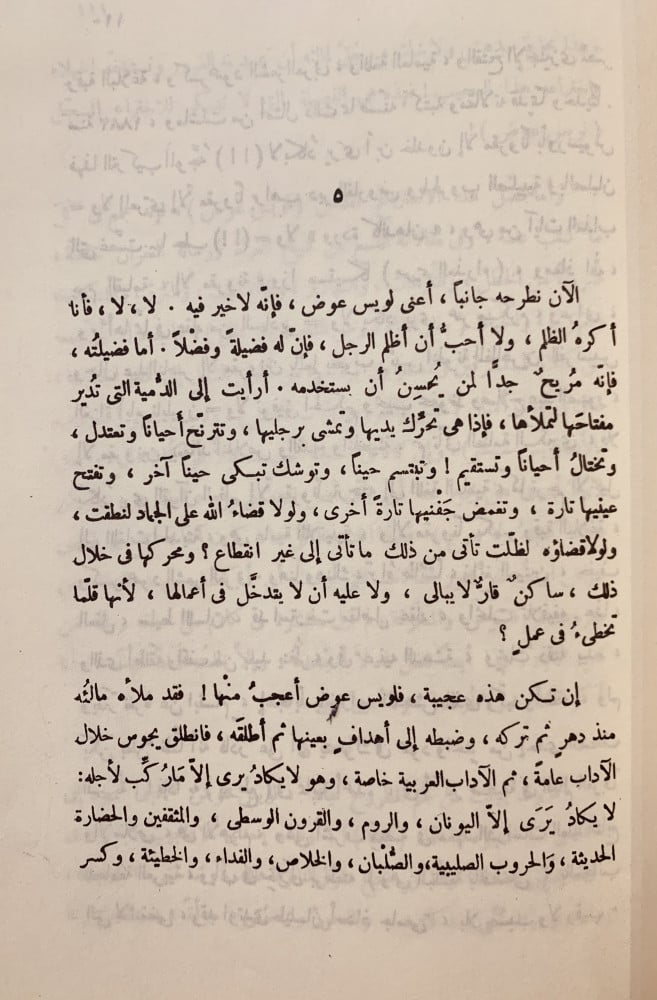 ٥
الآن نطرحه جانباً ، أعنى لويس عوض ، فإنّه لاخير فيه . لا ، لا ، فأنا
أكرهُ الظلم ، ولا أحبُّ أن أظلم الرجل ، فإنّ له فضيلةً وفضْلاً . أما فضيلتُه ،
فإنّه مُريحٌ جدًّا لمن يُحسِنُ أن يستخدمه . أرأيت إلى الدُّمية التى تُدير
مفتاحَها لتملأها ، فإذا هى تحرِّك يديها وتمشى برجليها ، وتترنّح أحياناً وتعتدل ،
وتختالُ أحياناً وتستقيم ! وتبتسم حيناً ، وتوشك تبكى حيناً آخر ، وتفتح
عينيها تارة ، وتغمض جَفْنيها تارةً أخرى ، ولولا قضاءُ الله على الجماد لنطقت ،
ولولاقضاؤه لظلّت تأتى من ذلك ماتأتى إلى غير انقطاع ؟ ومحركها فى خلال
ذلك ، ساكنٌ قارٌّ لايبالى ، ولا عليه أن لا يتدخَّل فى أعمالها ، لأنها قلّما
تخطىءُ فى عملٍ ؟
إن تكن هذه عجيبة ، فلويس عوض أعجبُ منْها ! فقد ملأه مالئُه
منذ دهرٍ ثم تركه ، وضبطه إلى أهدافٍ بعينها ثم أطلقَه ، فانطلق يجوس خلال
الآداب عامةً ، ثم الآداب العربية خاصة ، وهو لايكادُ يرى إلاّ مَارُكِّب لأجله :
لا يكادُ يَرَى إلاّ اليونان ، والروم ، والقرون الوسطى ، والمثقفين والحضارة
الحديثة ، وَالحروب الصليبية ، والصُّلْبان ، والخلاص ، والفداء ، والخطيئة ، وكسر